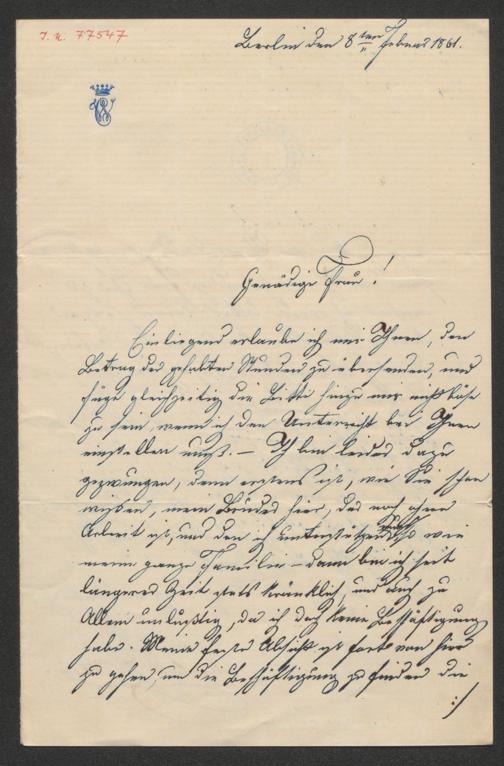 J. N. 77547
Berlin den 8ten Februar 1861.
Gnädige Frau!
Einliegend erlaube ich mir Ihnen, den
Betrag der gehabten Stunden zu übersenden, und
füge gleichzeitig die Bitte hinzu mir nicht böse
zu sein, wenn ich den Unterricht bei Ihnen
einstellen muß. – Ich bin leider dazu
gezwungen, denn erstens ist, wie Sie schon
wissen, mein Bruder hier, der noch ohne
Arbeit ist, und den ich unterstützen muß wie
meine ganze Familie – dann bin ich seit
längerer Zeit stets kränklich, und auch zu
Allem unlustig, da ich doch keine Beschäftigung
habe. Meine feste Absicht ist fort von hier
zu gehen, um die Beschäftigung zu finden die